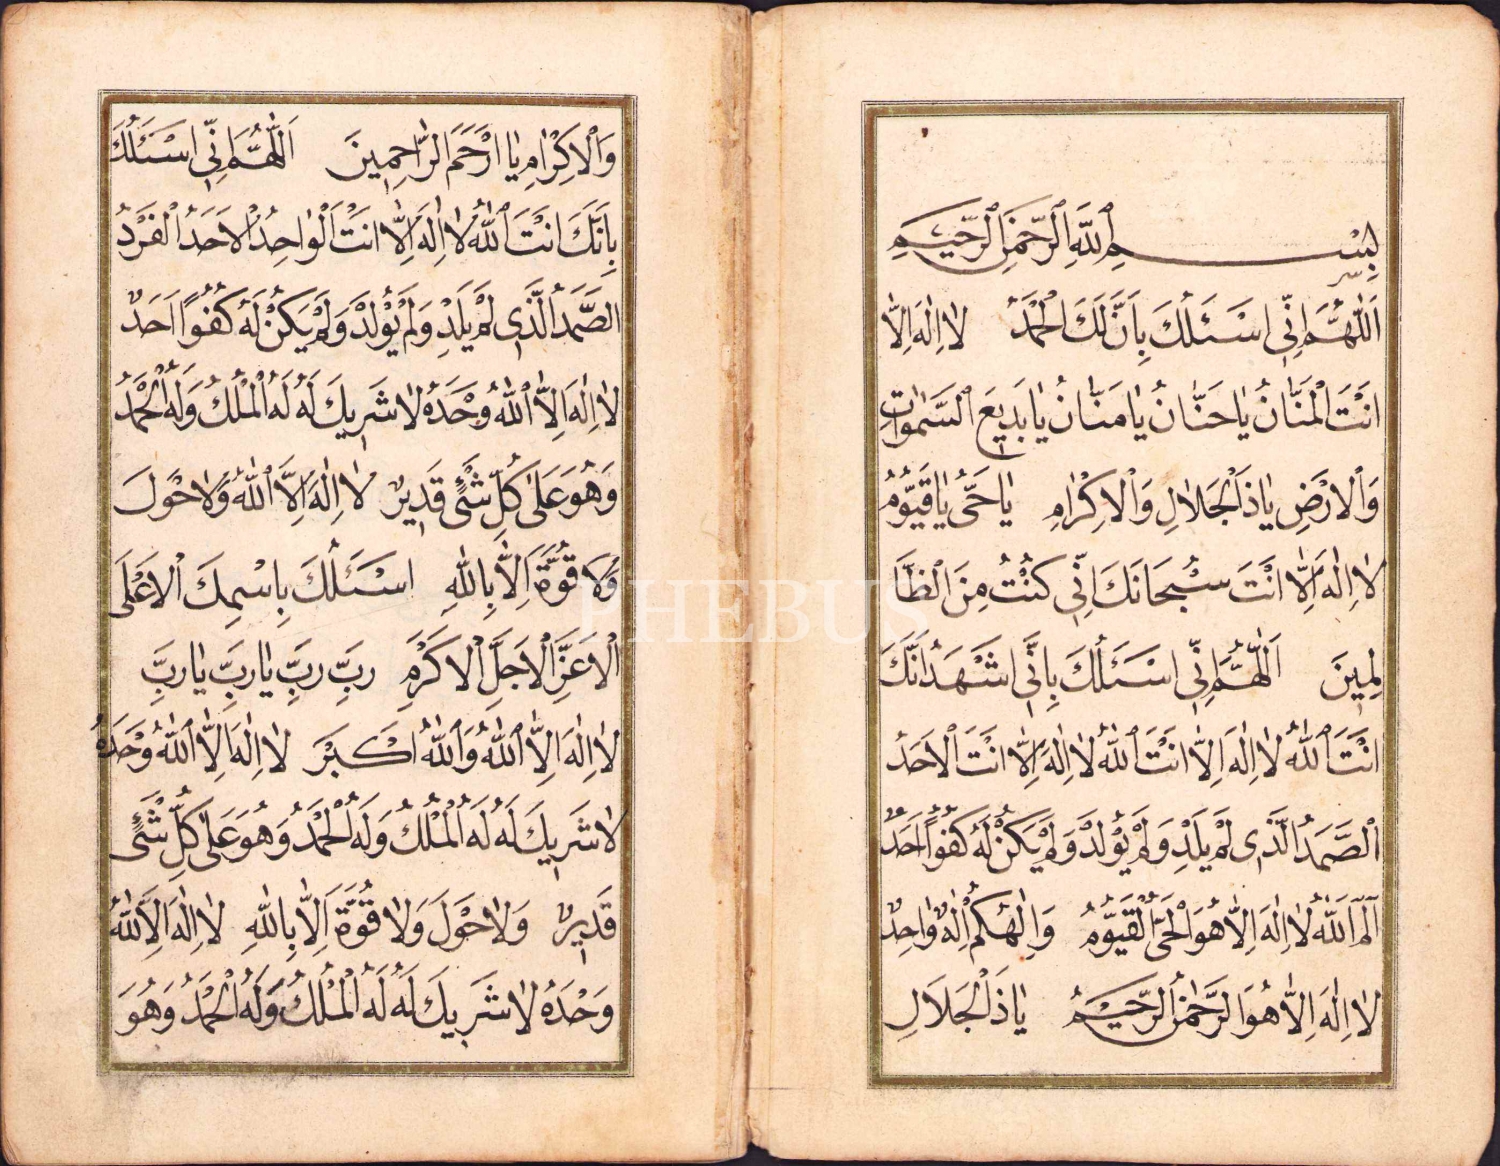 بِسْمِ ٱللّٰهِ ٱلرَّحْمٰنِ ٱلرَّحِيمِ
اَللّٰهُمَّ اِنّٖى اَسْئَلُكَ بِاَنَّ لَكَ الْحَمْدُ لَا اِلٰهَ اِلَّا
اَنْتَ الْمَنَّانُ يَا حَنَّانُ يَا مَنَّانُ يَا بَدِيعَ السَّمٰوَاتِ
وَالْاَرْضِ يَا ذَا الْجَلَالِ وَالْاِكْرَامِ يَا حَىُّ يَا قَيُّومُ
لَا اِلٰهَ اِلَّا اَنْتَ سُبْحَانَكَ اِنّٖى كُنْتُ مِنَ الظَّا
لِمِينَ اَللّٰهُمَّ اِنّٖى اَسْئَلُكَ بِاَنّٖى اَشْهَدُ اَنَّكَ
اَنْتَ اللّٰهُ لَا اِلٰهَ اِلَّا اَنْتَ اللّٰهُ لَا اِلٰهَ اِلَّا اَنْتَ الْاَحَدُ
الصَّمَدُ الَّذٖى لَمْ يَلِدْ وَلَمْ يُولَدْ وَلَمْ يَكُنْ لَهُ كُفُوًا اَحَدٌ
الٓمٓ اَللّٰهُ لَا اِلٰهَ اِلَّا هُوَ الْحَىُّ الْقَيُّومُ وَاِلٰهُكُمْ اِلٰهٌ وَاحِدٌ
لَا اِلٰهَ اِلَّا هُوَ الرَّحْمٰنُ الرَّحِيمُ يَا ذَا الْجَلَالِ
وَالْاِكْرَامِ يَا اَرْحَمَ الرَّاحِمِينَ اَللّٰهُمَّ اِنّٖى اَسْئَلُكَ
بِاَنَّكَ اَنْتَ اللّٰهُ لَا اِلٰهَ اِلَّا اَنْتَ الْوَاحِدُ الْاَحَدُ الْفَرْدُ
الصَّمَدُ الَّذٖى لَمْ يَلِدْ وَلَمْ يُولَدْ وَلَمْ يَكُنْ لَهُ كُفُوًا اَحَدٌ
لَا اِلٰهَ اِلَّا اللّٰهُ وَحْدَهُ لَا شَرِيكَ لَهُ لَهُ الْمُلْكُ وَلَهُ الْحَمْدُ
وَهُوَ عَلٰى كُلِّ شَىْءٍ قَدِيرٌ لَا اِلٰهَ اِلَّا اللّٰهُ وَلَا حَوْلَ
وَلَا قُوَّةَ اِلَّا بِاللّٰهِ اَسْئَلُكَ بِاسْمِكَ الْاَعْلَى
الْاَعَزِّ الْاَجَلِّ الْاَكْرَمِ رَبِّ رَبِّ يَا رَبِّ يَا رَبِّ
لَا اِلٰهَ اِلَّا اللّٰهُ وَاللّٰهُ اَكْبَرُ لَا اِلٰهَ اِلَّا اللّٰهُ وَحْدَهُ
لَا شَرِيكَ لَهُ لَهُ الْمُلْكُ وَلَهُ الْحَمْدُ وَهُوَ عَلٰى كُلِّ شَىْءٍ
قَدِيرٌ وَلَا حَوْلَ وَلَا قُوَّةَ اِلَّا بِاللّٰهِ لَا اِلٰهَ اِلَّا اللّٰهُ
وَحْدَهُ لَا شَرِيكَ لَهُ لَهُ الْمُلْكُ وَلَهُ الْحَمْدُ وَهُوَ
PHEBUS